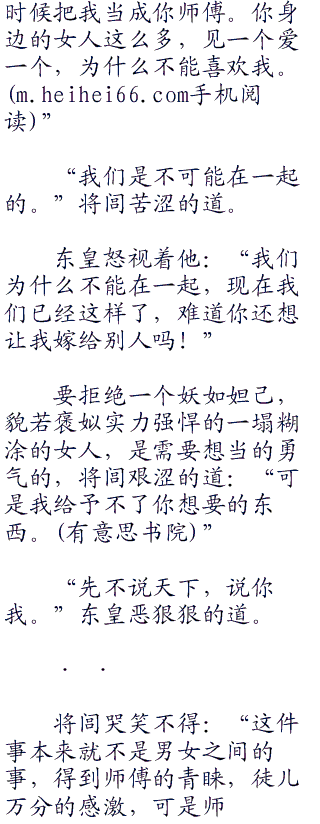 时候把我当成你师傅。你身
边的女人这么多，见一个爱
一个，为什么不能喜欢我。
(m.heihei66.com手机阅
读)”
“我们是不可能在一起
的。”将闾苦涩的道。
东皇怒视着他：“我们
为什么不能在一起，现在我
们已经这样了，难道你还想
让我嫁给别人吗！”
要拒绝一个妖如妲己，
貌若褒姒实力强悍的一塌糊
涂的女人，是需要想当的勇
气的，将闾艰涩的道：“可
是我给予不了你想要的东
西。(有意思书院)”
“先不说天下，说你
我。”东皇恶狠狠的道。
． ．
将闾哭笑不得：“这件
事本来就不是男女之间的
事，得到师傅的青睐，徒儿
万分的感激，可是师